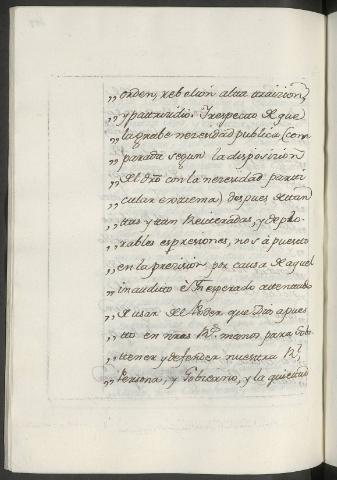 ,, orden, rebelion alta traizion,
,, y patrizidio. Irespecto de que
,, la grabe nezesidad publica (com
,, parada segun la disposizion
,, del dro con la nezesidad parti
,, cular extrema) despues de tan
,, tas y tan Reiteradas, y deplo-
,, rables espresiones, nos á puesto
,, en la prezision por causa de aquel
,, inaudito è Inesperado attentado
,, de usar del Poder que Dios a pues
,, to en nras Rs. manos para sobs
,, tener y defender nuestra Rl.
,, Persona, y Gobierno, y la quietud